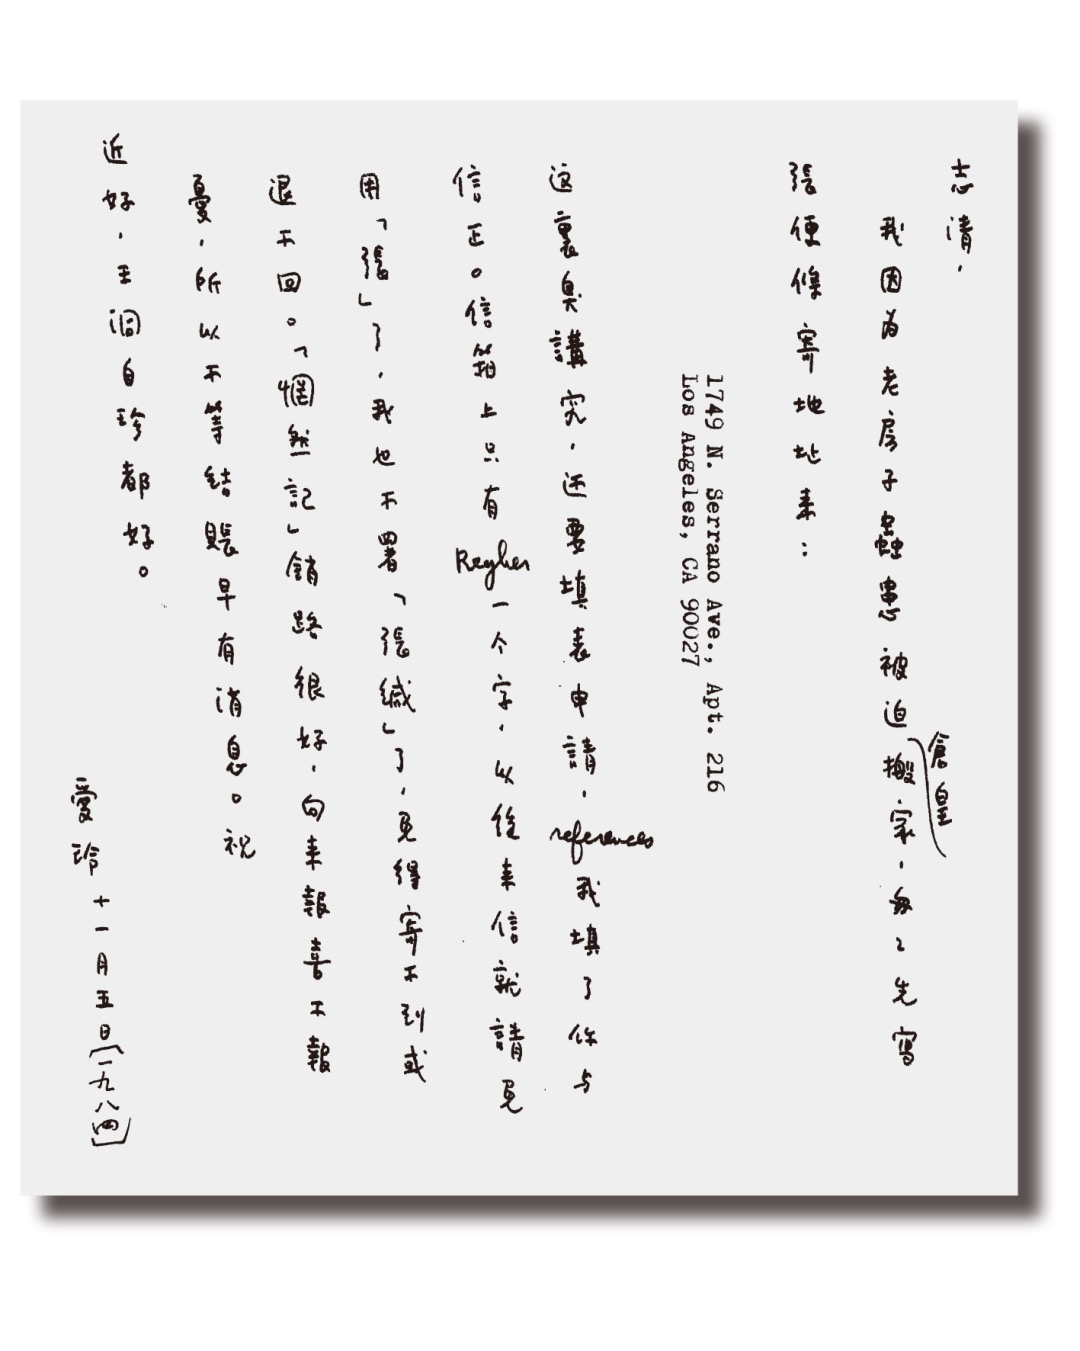 志清，
我因为老房子蟲患被迫倉皇搬家，匆〻先寫
張便條寄地址来：
1749 N. Serrano Ave., Apt. 216
Los Angeles, CA 90027
这裏臭講究，还要填表申請，references我填了你与
信正。信箱上只有Reyher一个字，以後来信就請免
用「張」了，我也不署「張緘」了，免得寄不到或
退不回。「惘然記」銷路很好，向来報喜不報
憂，所以不等結賬早有消息。祝
近好，王洞自珍都好。
愛玲 十一月五日[一九八四]